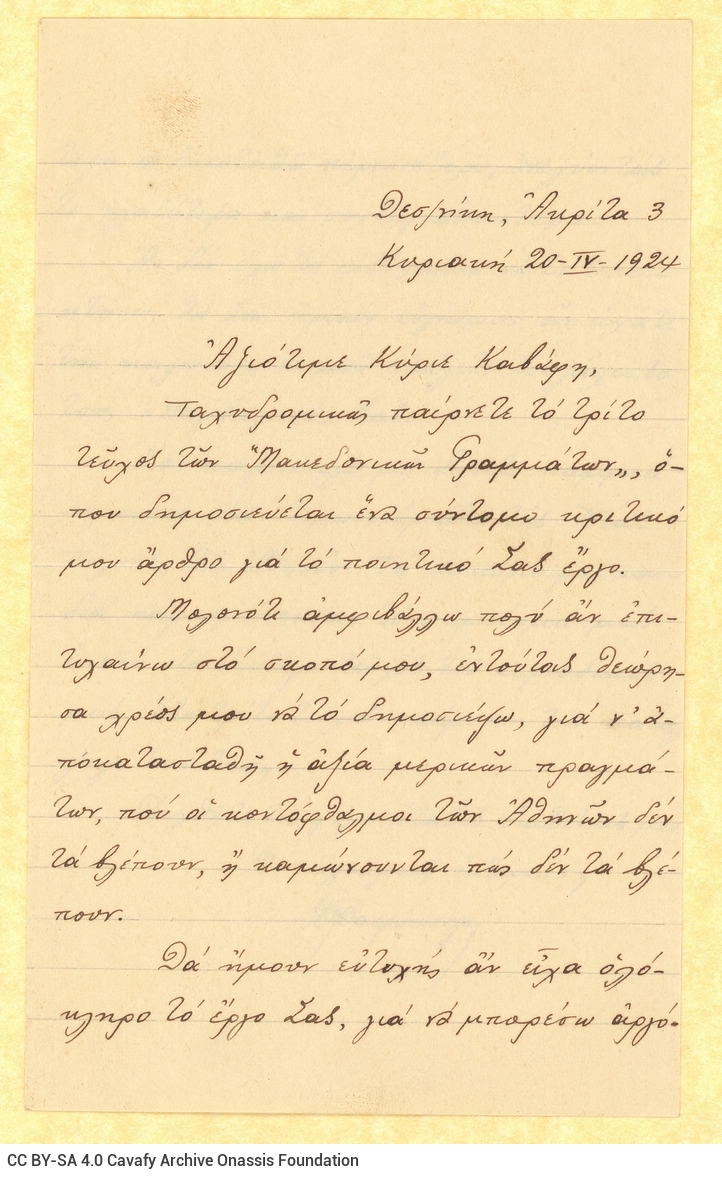 Θεσ/νίκη, Ἀκρίτα 3
Κυριακή 20-IV-1924
Ἀξιότιμε Κύριε Καβάφη,
Ταχυδρομικῶς παίρνετε τό τρίτο
τεῦχος τῶν "Μακεδονικῶν Γραμμάτων„, ὅ-
που δημοσιεύεται ἕνα σύντομο κριτικό
μου ἄρθρο γιά τό ποιητικό Σας ἔργο.
Μολονότι ἀμφιβάλλω πολύ ἄν ἐπι-
τυχαίνω στό σκοπό μου, ἐντούτοις θεώρη-
σα χρέος μου νά τό δημοσιέψω, γιά ν' ἀ-
ποκατασταθῆ ἡ ἀξία μερικῶν πραγμά-
των, πού οἱ κοντόφθαλμοι τῶν Ἀθηνῶν δέν
τά βλέπουν, ἤ καμώνουνται πώς δέν τά βλέ-
πουν.
Θά ἤμουν εὐτυχής ἄν εἶχα ὁλό-
κληρο τό ἔργο Σας, γιά νά μπορέσω ἀργό-
CC BY-SA 4.0 Cavafy Archive Onassis Foundation